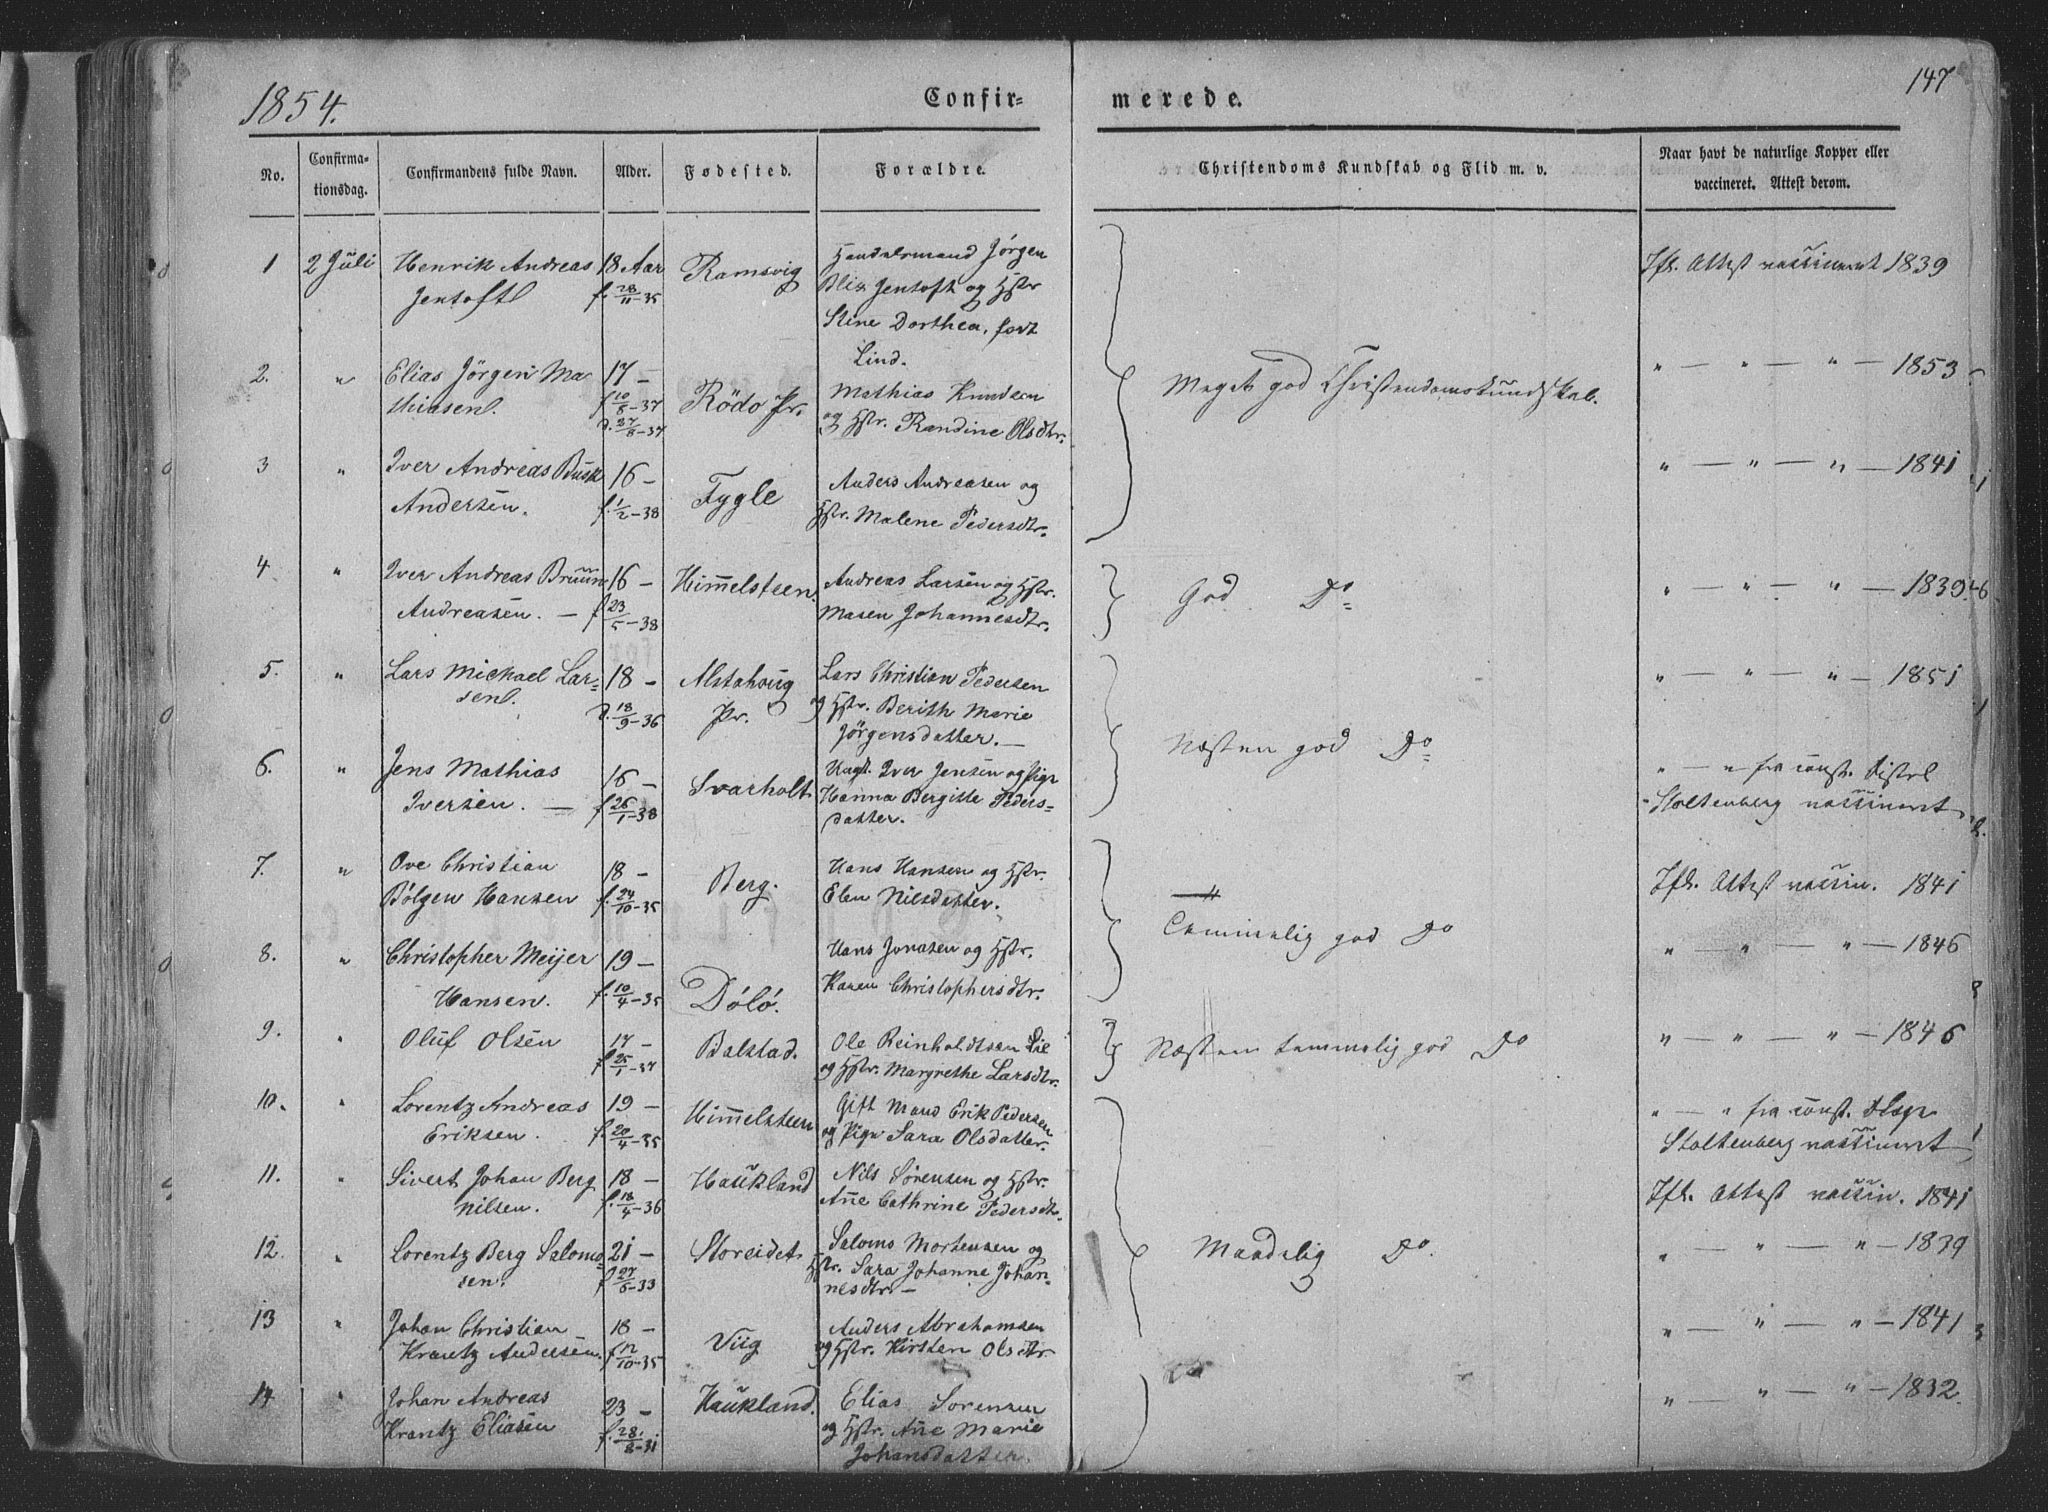 1854.
Confirmerede.
147
No.
Confirmationsdag.
Confirmandens fulde Navn.
Alder.
Fødested.
Forældre.
Christendoms Kundskab og Flid m. v.
Naar havt de naturlige Kopper eller
vaccineret. Attest derom.
1 2 Juli Henrik Andreas 18 Aar Ramsvig Handelsmand Jörgen Ifl. Attest vaccineret 1839
Jentoft f. 28/11-35 Blix Jentoft og Hstr
Stine Dorthea, født
Lind.
2. " Elias Jörgen Ma 17 — Rödö Pr. Mathias Knudsen Meget god Christendomskundskab. " — " — " — 1853
thiasen. f 10/8-37 og Hstr. Randine Olsdtr.
d. 27/8-37
3 " Iver Andreas Busk 16 — Fygle Anders Andreasen og " — " — " — 1841
Andersen. f. 1/2-38 Hstr. Malene Pedersdtr.
4 " Iver Andreas Bruun 16 — Himmelsteen. Andreas Larsen og Hstr. God Do " — " — " — 1839
Andreasen. — f 23/5-38 Maren Johannesdtr.
5. " Lars Michael Lar= 18 — Alstahoug Lars Christian Pedersen " — " — " — 1851
sen. d. 18/9-36 Pr. og Hstr. Berith Marie
Jörgensdatter. — Næsten god Do
6. " Jens Mathias 16 — Svarholt Ungk. Iver Jensen og Pige " — " fra const. Distrl
Iversen. — f 26/1-38 Hanna Bergitte Peders- Stoltenberg vaccineret
datter.
7. " Ove Christian 18 — Berg. Hans Hansen og Hstr. Ifl. Attest vaccin. 1841
Bölgen Hansen f. 24/10-35 Elen Nilsdatter.
Temmelig god Do
8. " Christopher Meijer 19 — Dölö. Hans Jonasen og Hstr. " — " — " — 1846
Hansen. f. 10/4-35 Karen Christophersdtr.
9. " Oluf Olsen 17 — Balstad. Ole Reinholdtsen Lie Næsten temmelig god Do " — " — " — 1846
f 25/1-37 og Hstr. Margrethe Larsdtr.
10. " Lorentz Andreas 19 — Himmelsteen Gift Mand Erik Pedersen " — " fra const. Dlæge
Eriksen. f. 20/4-35 og Pige Sara Olsdatter. Stoltenberg vaccineret
11. " Sivert Johan Berg 18 — Haukland Nils Sörensen og Hstr. Ifl. Attest vaccin. 1841
Nilsen. f. 18/4-36 Ane Cathrine Pedersdtr.
12. " Lorentz Berg Salomo 21 — Storeidet Saloms Mortensen og Maadelig Do. " — " — " — 1839
sen. f 27/6-33 Hstr. Sara Johanne Johan-
nesdtr. —
13 " Johan Christian 18 — Viig Anders Abrahamsen " — " — " — 1841
Krantz Andersen. f 12/10-35 og Hstr. Kirsten Olsdtr.
14 " Johan Andreas 23 — Haukland. Elias Sörensen " — " — " — 1832.
Krantz Eliasen f. 28/8-31 og Hstr. Ane Marie
Johansdatter.